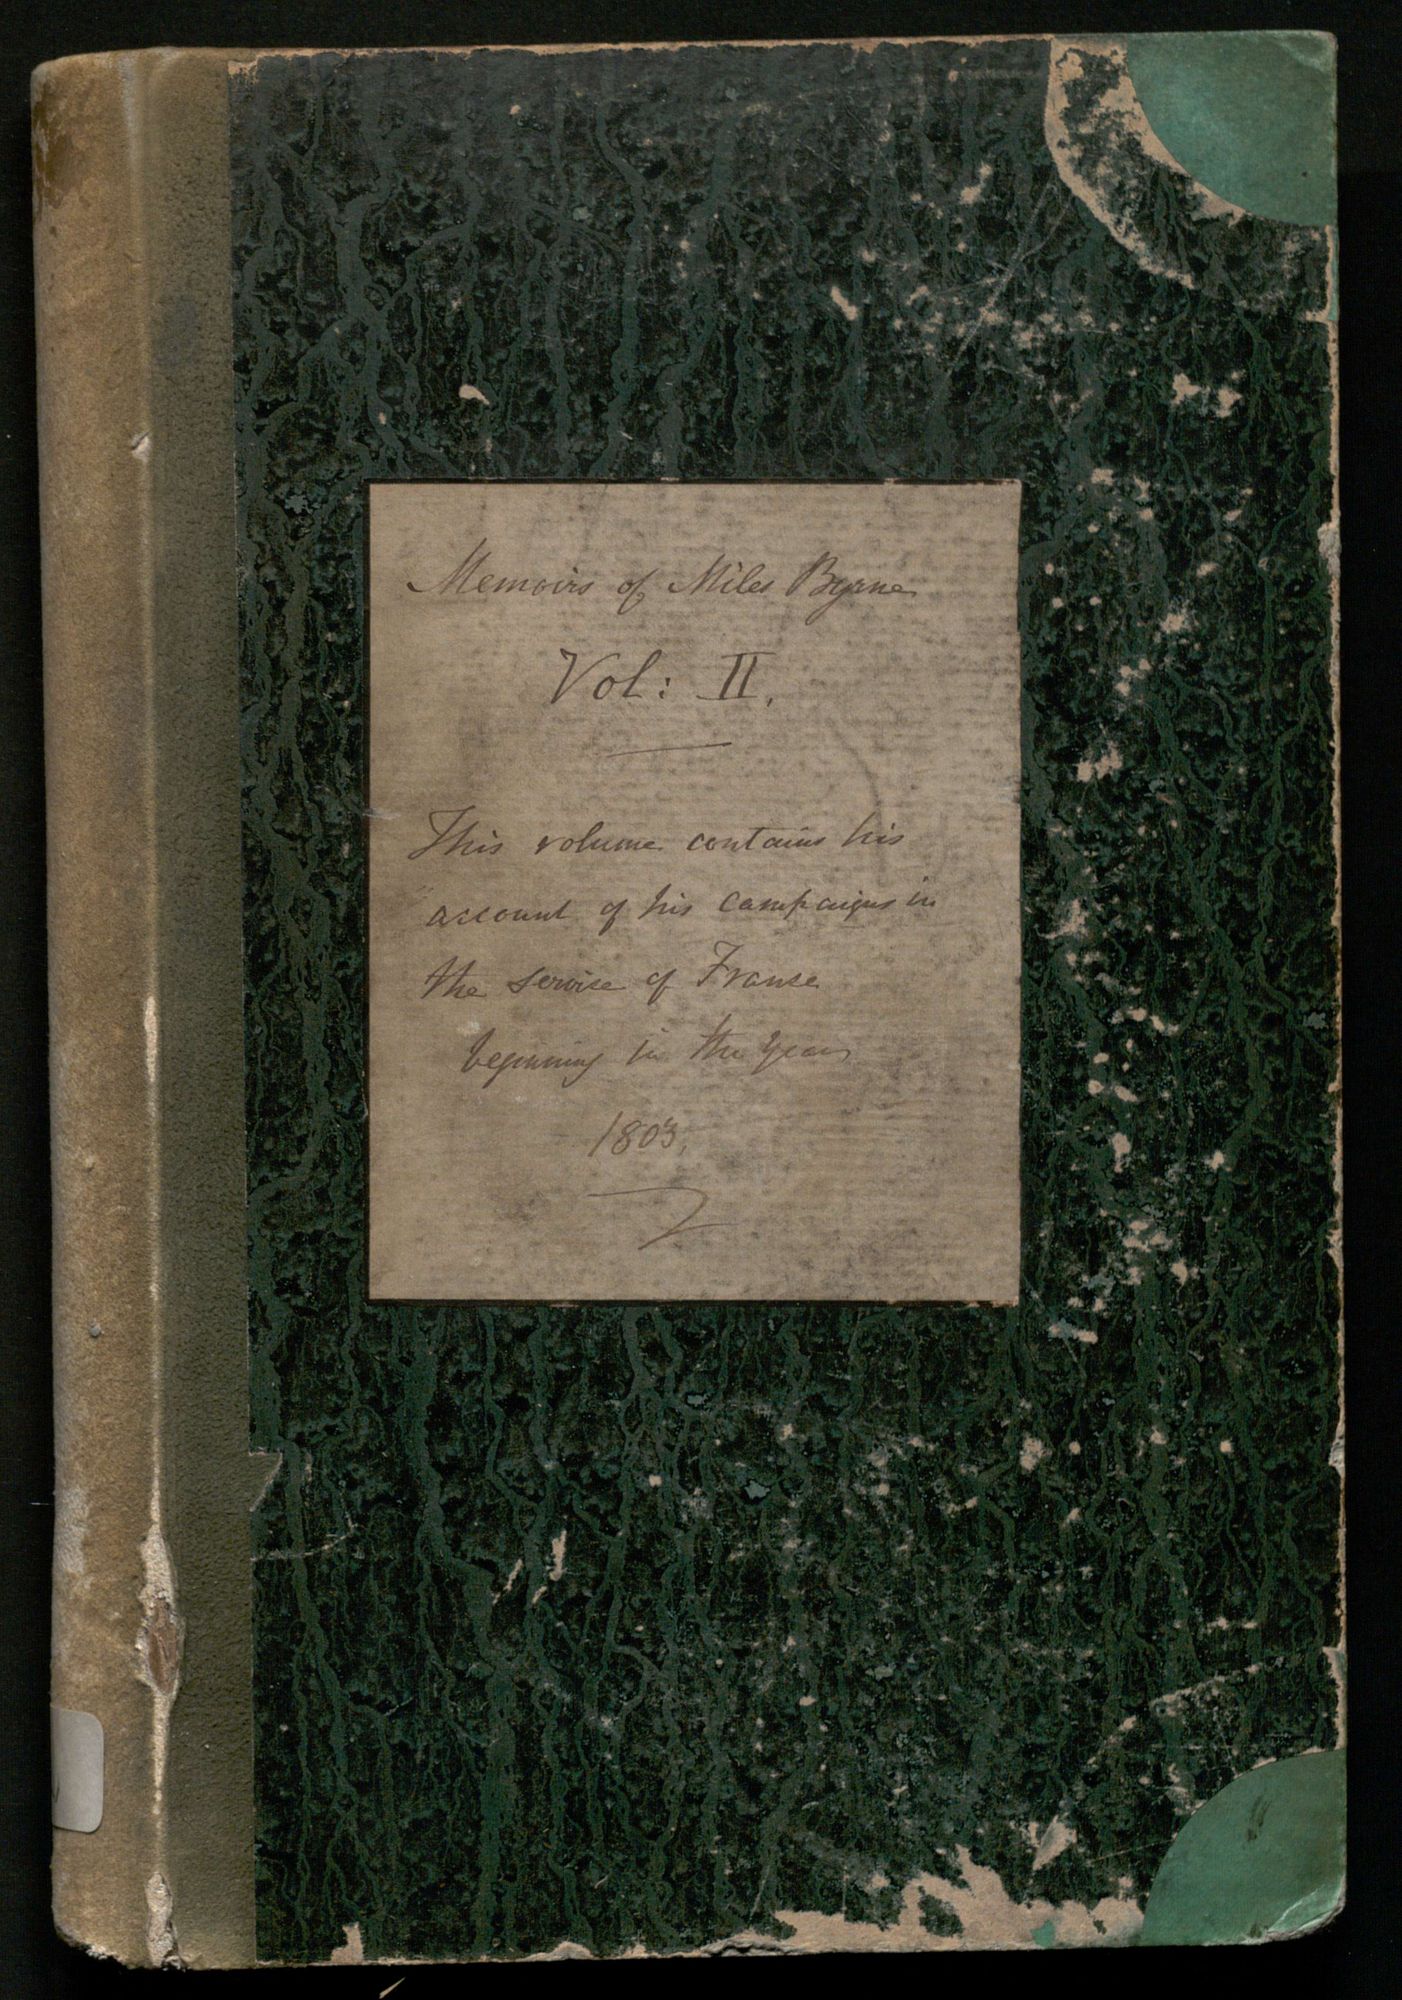 Memoirs of Miles Byrne
Vol: II.
This volume contains his
account of his campaigns in
the service of France
beginning in the year
1803.